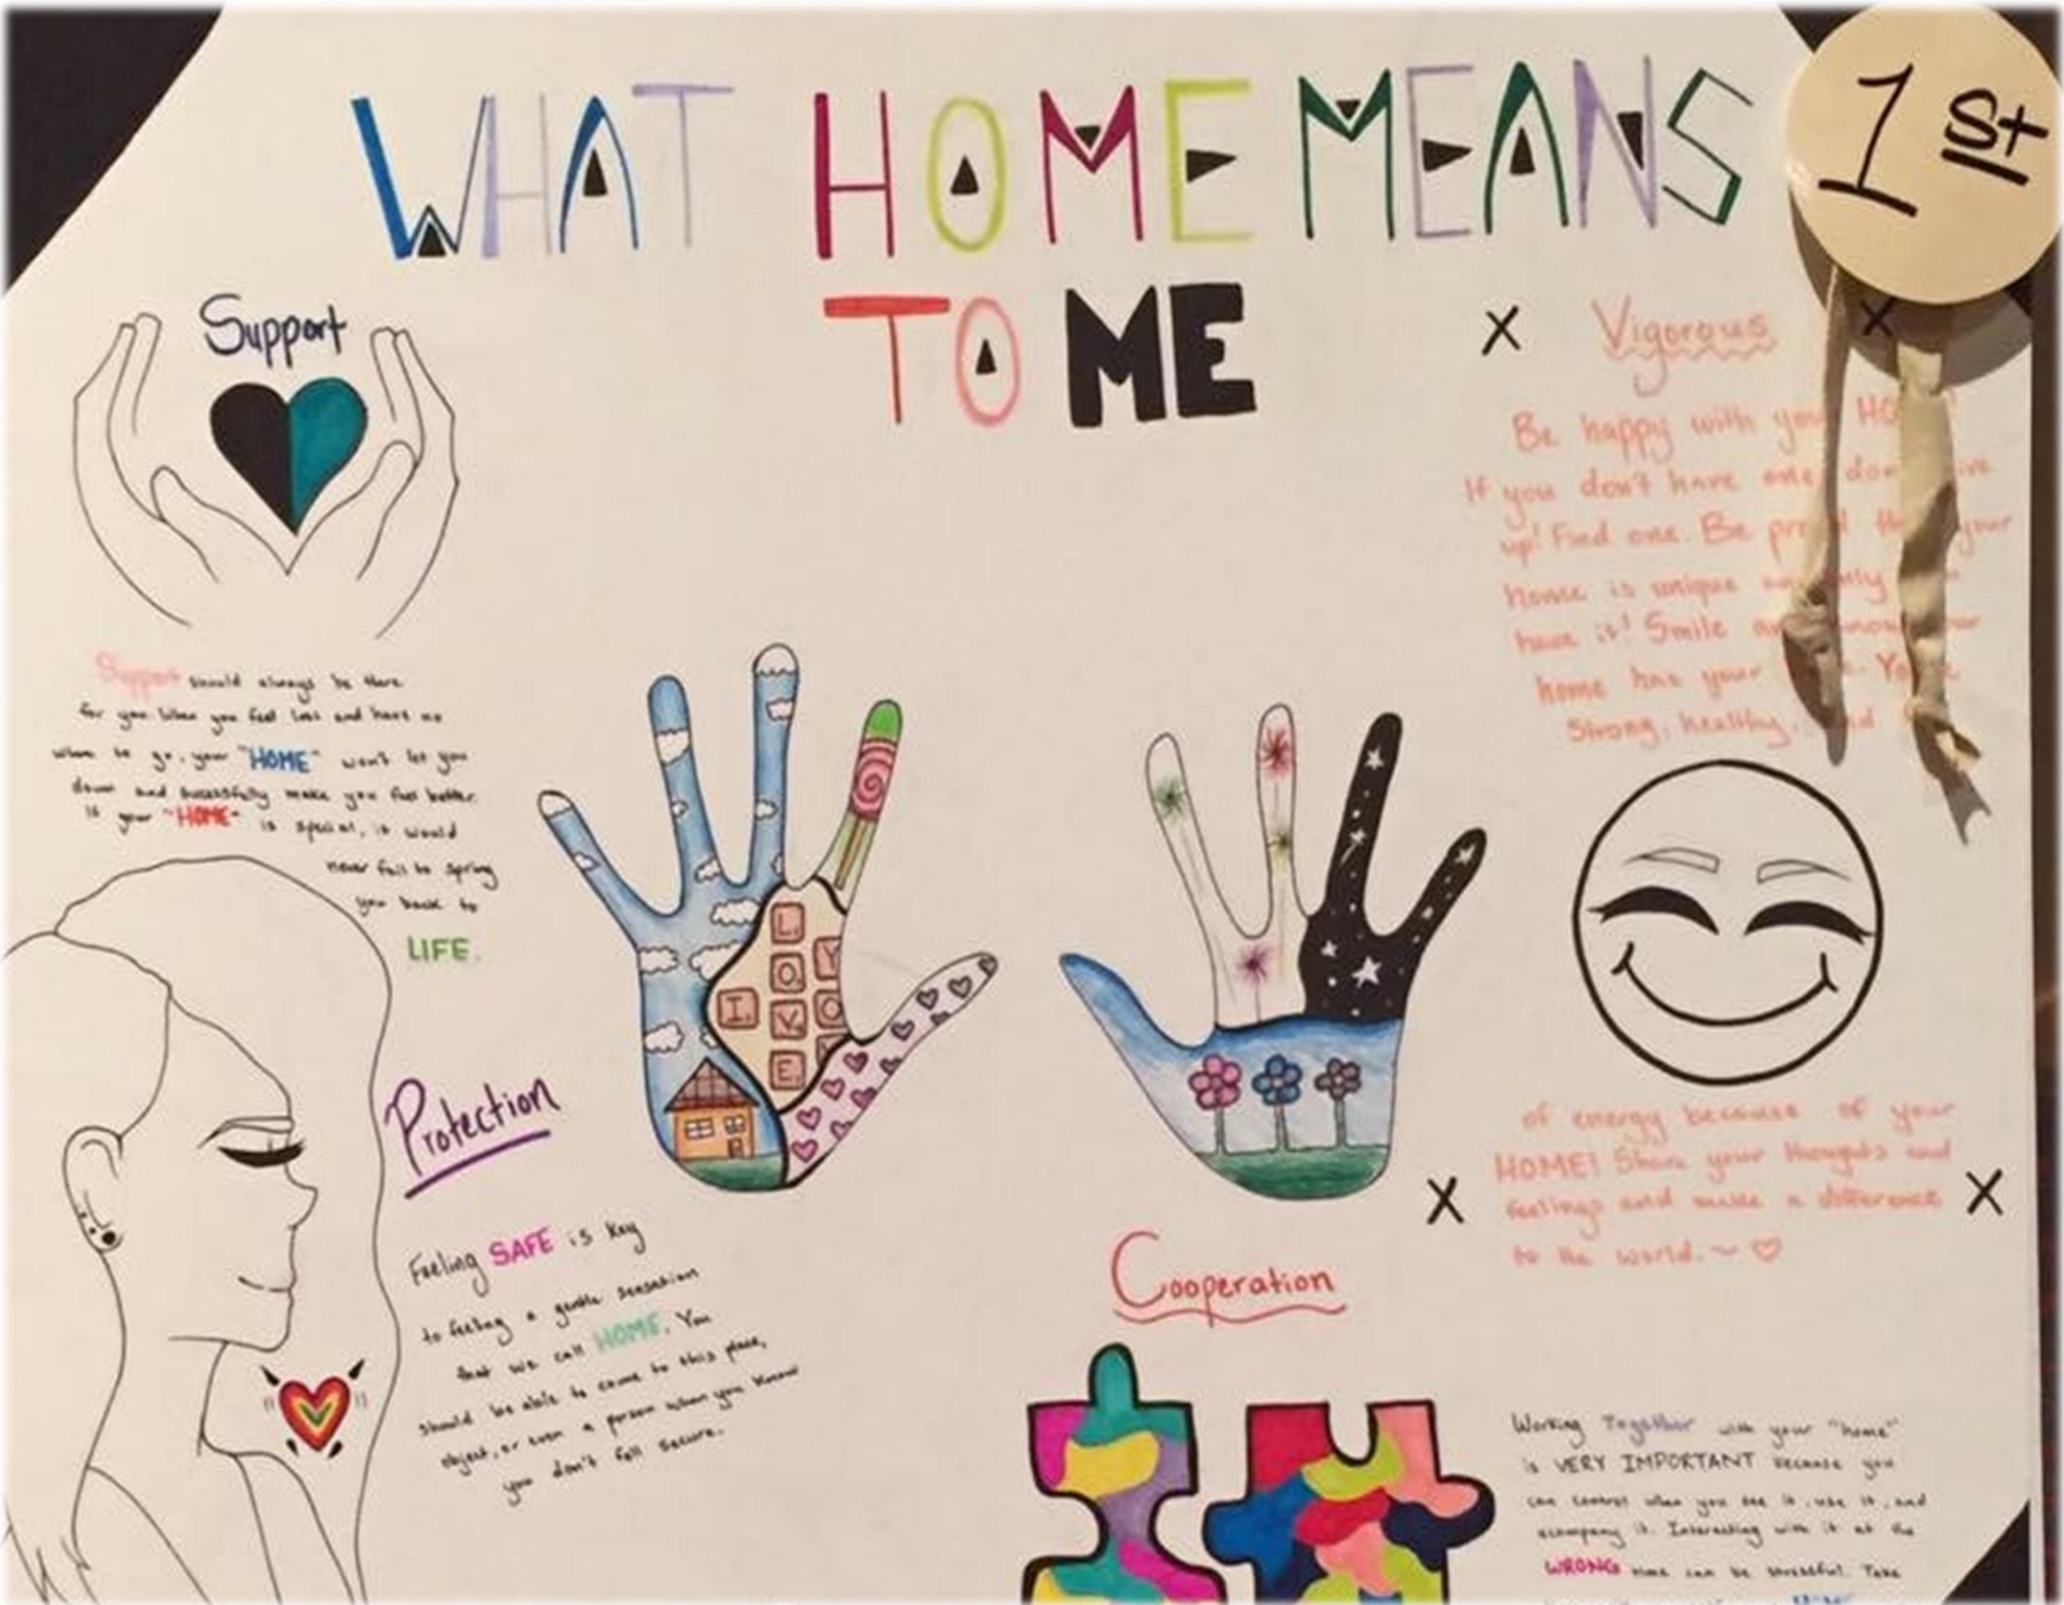 WHAT HOME MEANS
TO ME
1st
Support
Support should always be there
for you. When you feel loss and have no
where to go, your "HOME" won't let you
down and sucessfully make you feel better.
If your "HOME" is special, it would
never fail to spring
you back to
LIFE.
Protection
Feeling SAFE is key
to feeling a gentle sensation
that we call HOME. You
should be able to come to this place,
object, or even a person when you know
you don't fell secure.
L
O
I V O
E
Vigorous
Be happy with your
If you don't have one
up! Find one. Be your
home is unique
have it! Smile
home has your
Strong, healthy,
of energy because of your
HOME! Share your thoughts and
feelings and make a difference
to the world. ~ ♡
Cooperation
Working Together with your "home"
is VERY IMPORTANT because you
can control when you see it, use it, and
acompany it. Interacting with it at the
WRONG time can be stressful. Take